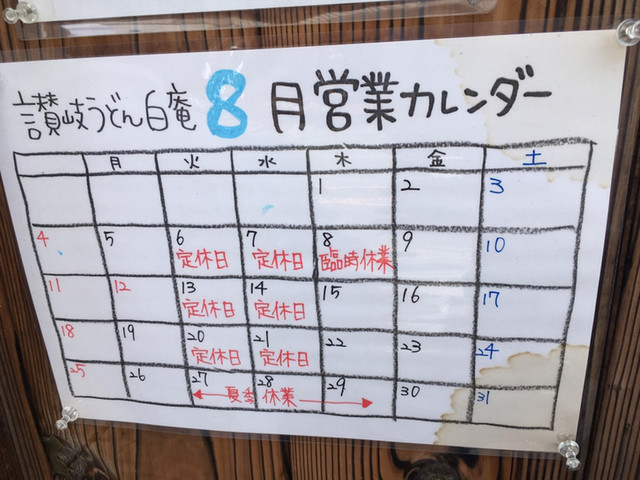 讃岐うどん白庵 8月営業カレンダー
月 火 水 木 金 土
1 2 3
4 5 6 7 8 9 10
定休日 定休日 臨時休業
11 12 13 14 15 16 17
定休日 定休日
18 19 20 21 22 23 24
定休日 定休日
25 26 27 28 29 30 31
夏季休業